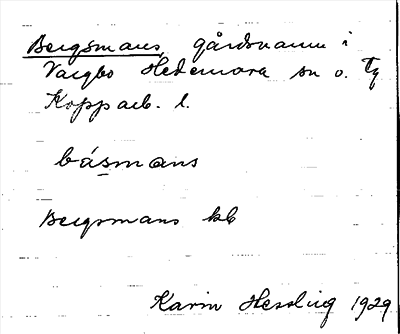 Bergsmans, gårdsnamn i
Vargbo Hedemora sn o. tg
Kopparb. l.
básmans
Bergsmans kb
Karin Hessling 1929